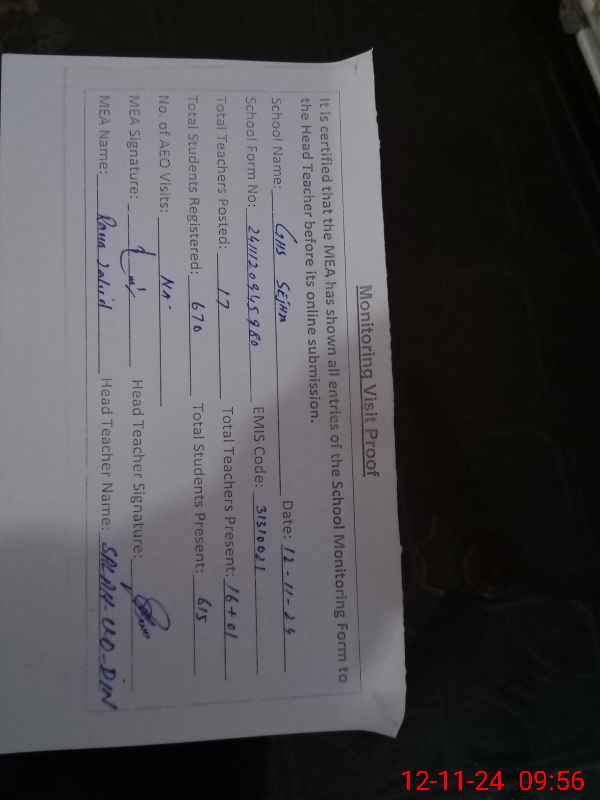 Monitoring Visit Proof
It is certified that the MEA has shown all entries of the School Monitoring Form to
the Head Teacher before its online submission.
School Name: GHS SEJHA Date: 12-11-24
School Form No: 2411120945980 EMIS Code: 31310021
Total Teachers Posted: 17 Total Teachers Present: 16+01
Total Students Registered: 670 Total Students Present: 615
No. of AEO Visits: NA
MEA Signature: Head Teacher Signature:
MEA Name: Rana Zahid Head Teacher Name: SALAH-UD-DIN
12-11-24 09:56